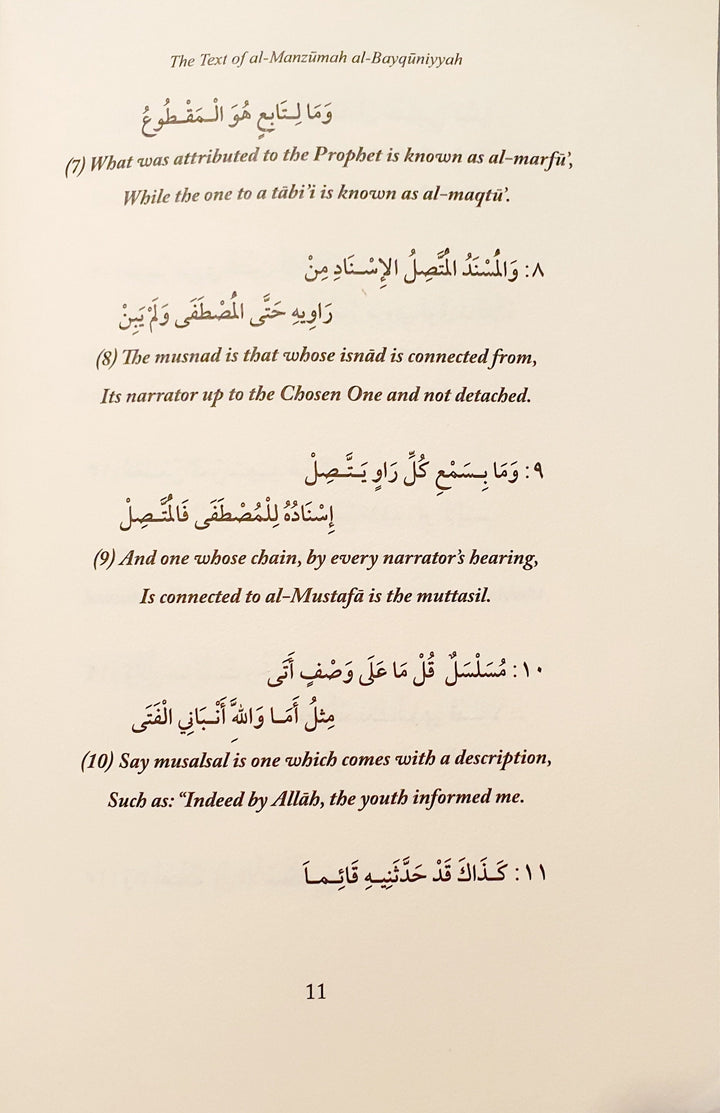 The Text of al-Manzūmah al-Bayqūniyyah
وَمَا لِتَابِعٍ هُوَ الْمَقْطُوعُ
(7) What was attributed to the Prophet is known as al-marfū',
While the one to a tābi'i is known as al-maqtū'.
٨: وَالْمُسْنَدُ الْمُتَّصِلُ الإِسْنَادِ مِنْ
رَاوِيهِ حَتَّى الْمُصْطَفَى وَلَمْ يَبِنْ
(8) The musnad is that whose isnād is connected from,
Its narrator up to the Chosen One and not detached.
٩: وَمَا بِسَمْعِ كُلِّ رَاوٍ يَتَّصِلْ
إِسْنَادُهُ لِلْمُصْطَفَى فَالْمُتَّصِلْ
(9) And one whose chain, by every narrator's hearing,
Is connected to al-Mustafā is the muttasil.
١٠: مُسَلْسَلٌ قُلْ مَا عَلَى وَصْفٍ أَتَى
مِثلُ أَمَا وَاللهِ أَنْبَانِي الْفَتَى
(10) Say musalsal is one which comes with a description,
Such as: “Indeed by Allāh, the youth informed me.
١١: كَذَاكَ قَدْ حَدَّثَنِيهِ قَائِماَ
11